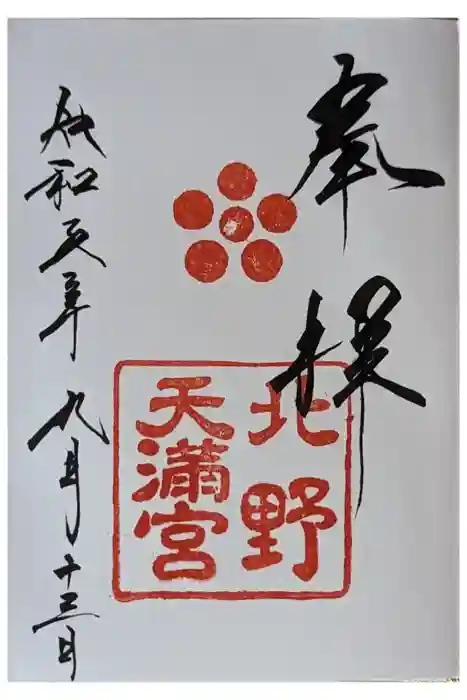 奉拝
北野
天満宮
令和元年九月十三日